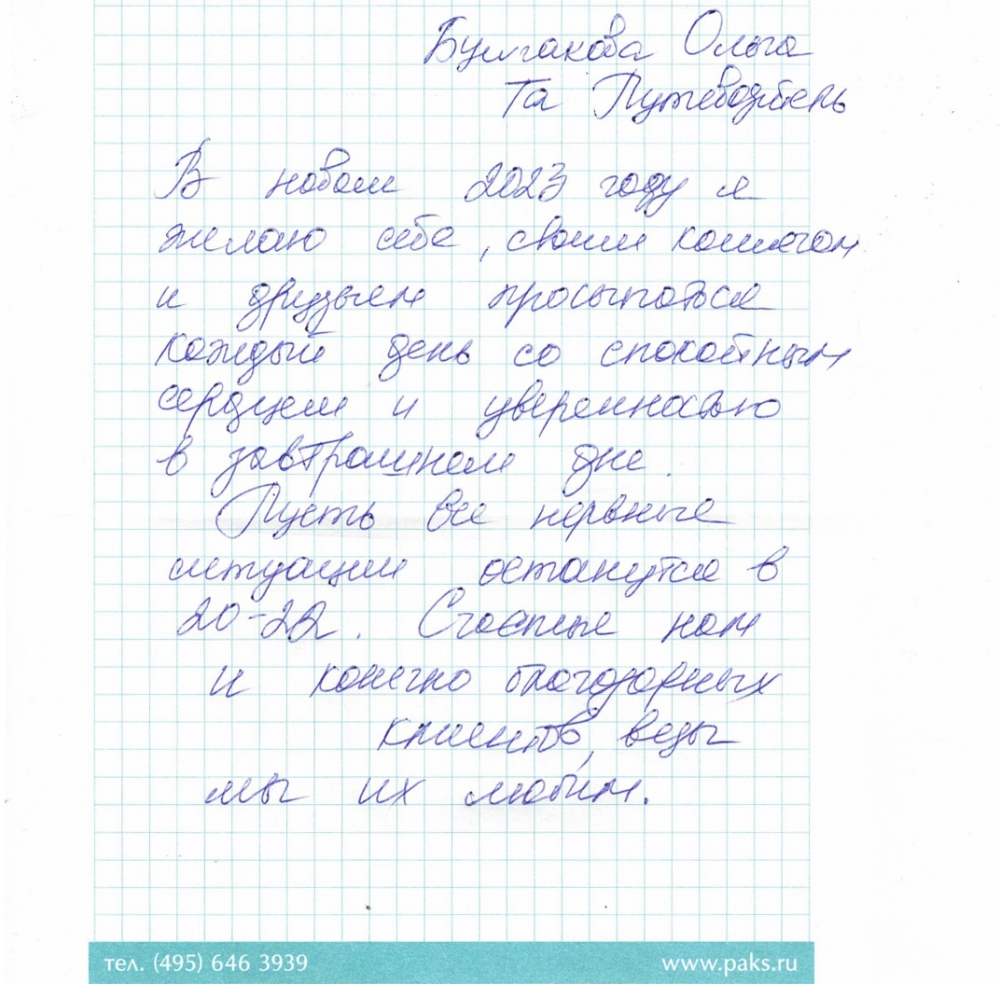 Булгакова Ольга
Та Путеводитель
В новом 2023 году я
желаю себе, своим коллегам
и друзьям просыпаться
каждый день со спокойным
сердцем и уверенностью
в завтрашнем дне.
Пусть все нервные
ситуации останутся в
20-22. Счастье нам
и конечно благодарных
клиентов, ведь
мы их любим.
тел. (495) 646 3939 www.paks.ru